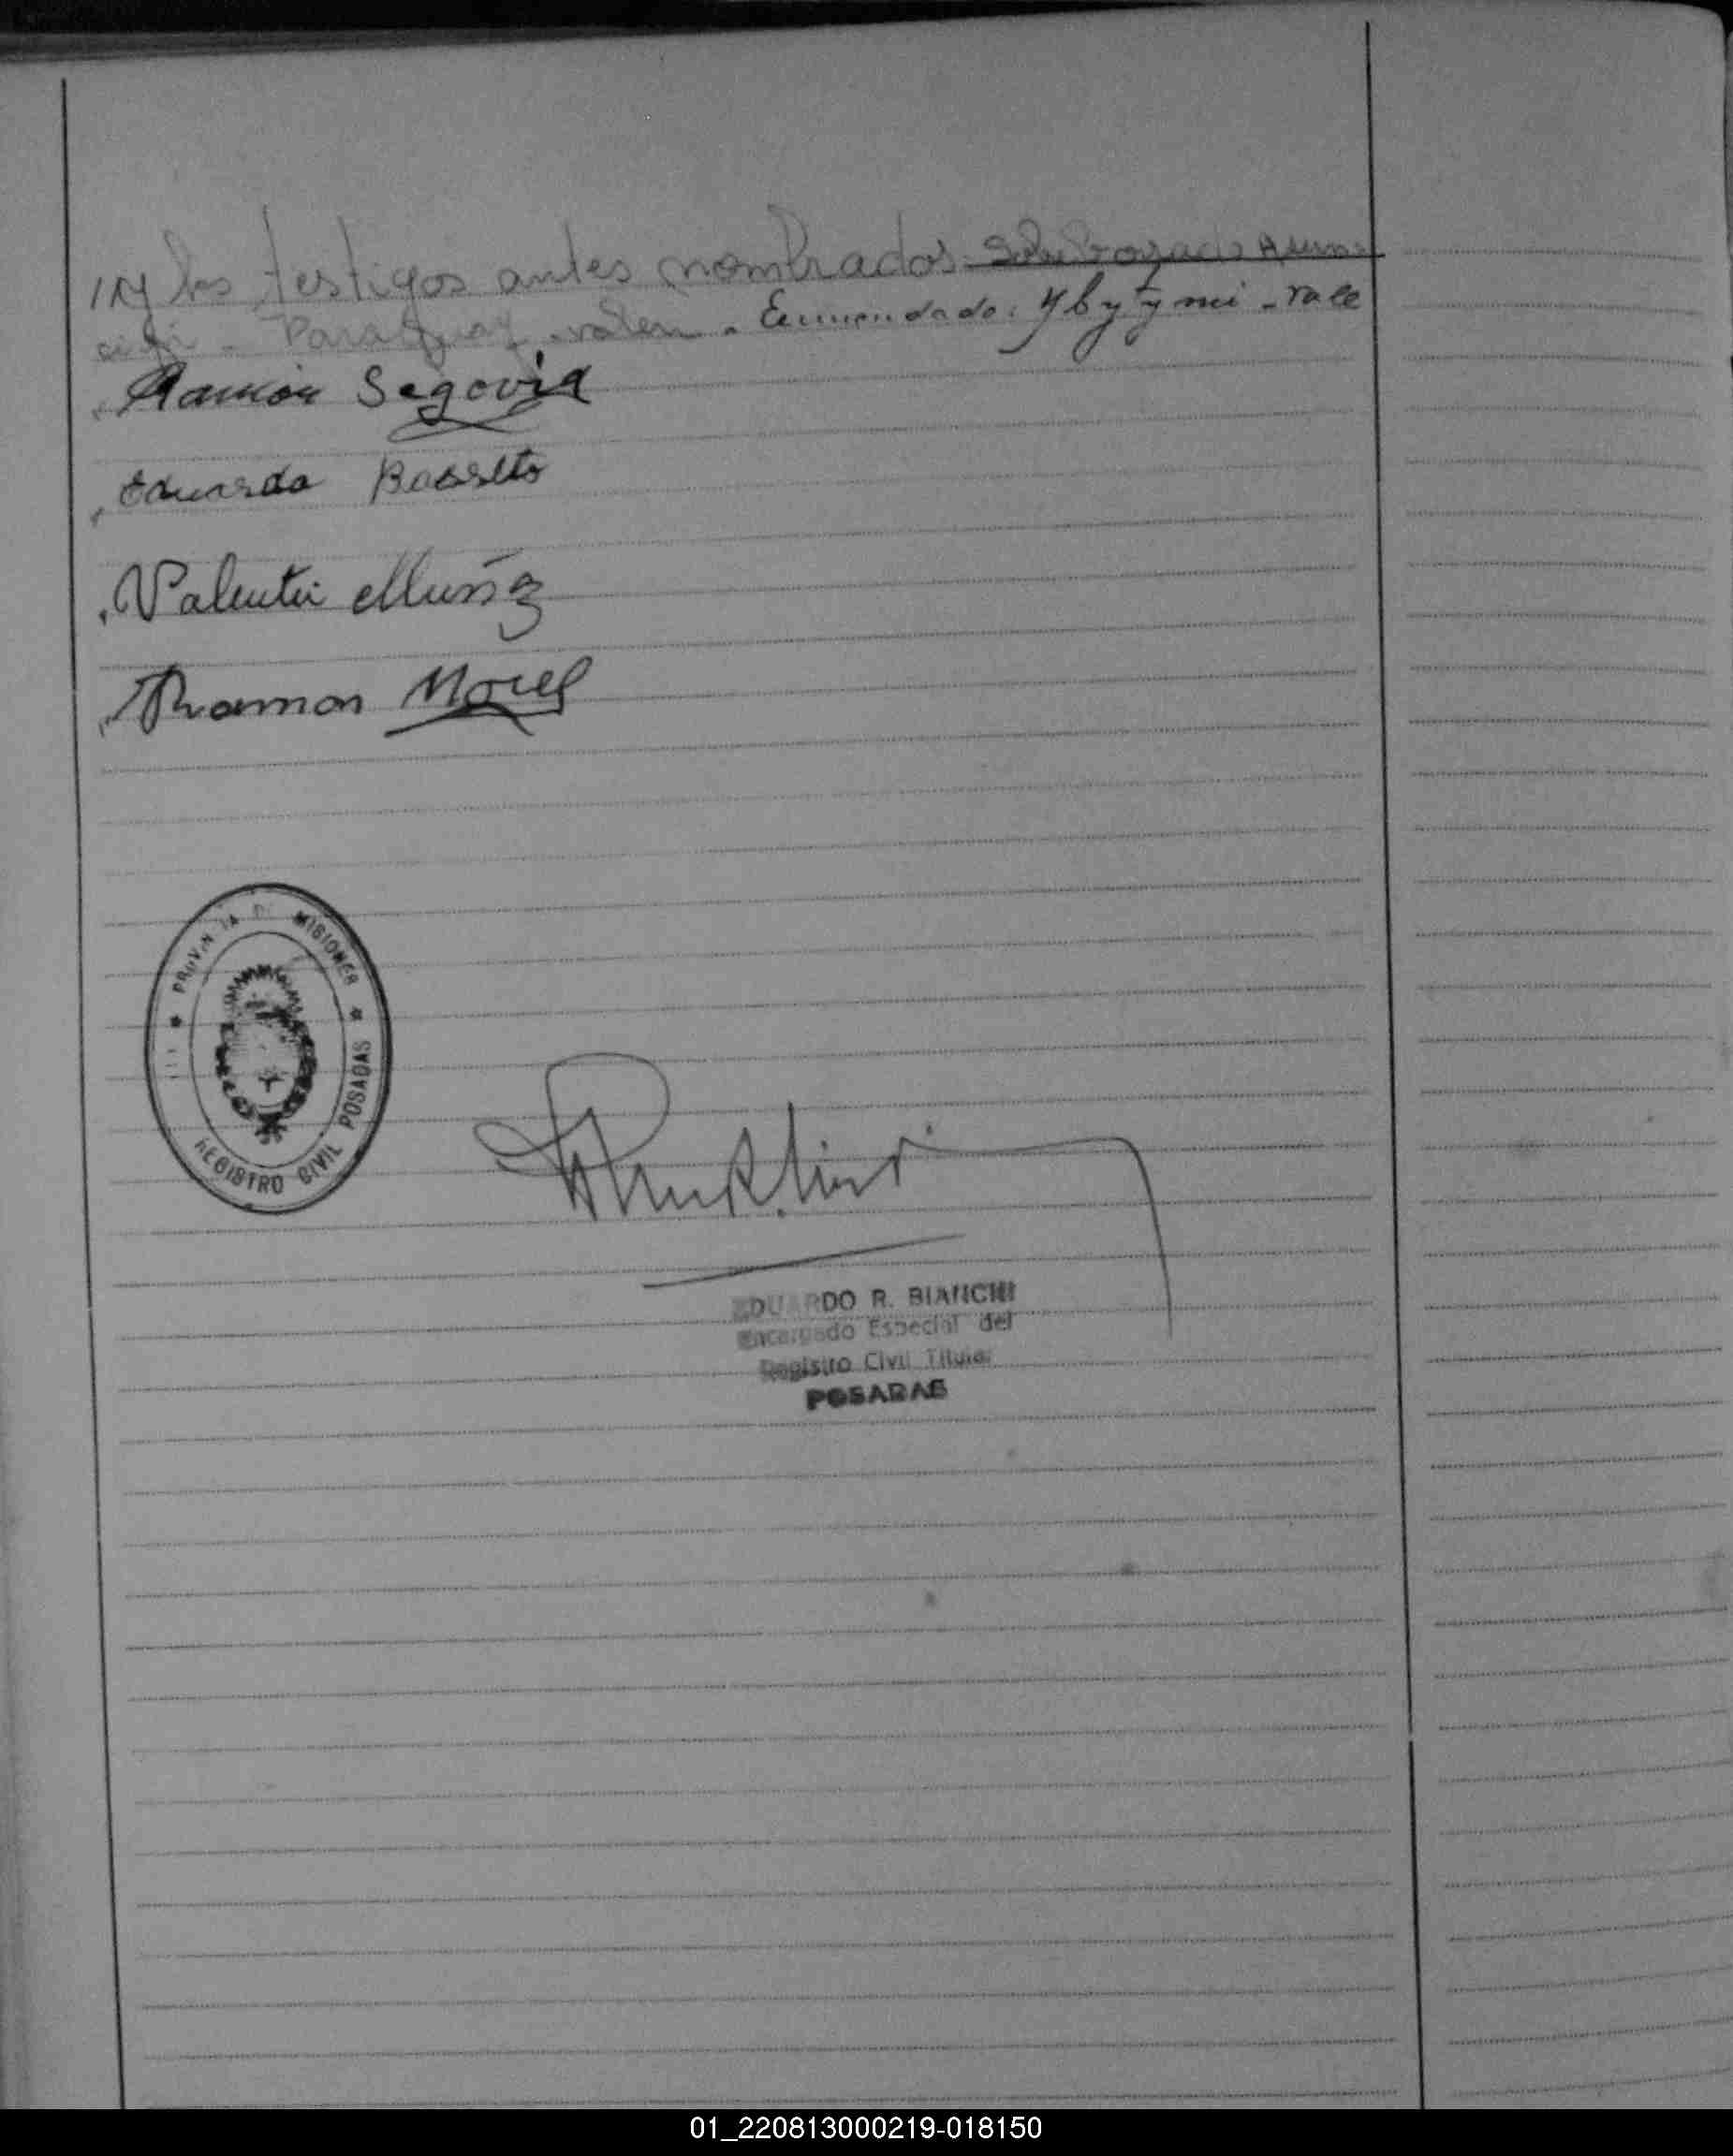 y los testigos antes nombrados.
Paraguay - valen. Enmendado: Ybytymi - vale
Ramón Segovia
Eduardo
Valentin Muñoz
Ramon Morel
PROVINCIA DE MISIONES
REGISTRO CIVIL POSADAS
EDUARDO R. BIANCHI
Encargado Especial del
Registro Civil Titular
POSADAS
01_220813000219-018150